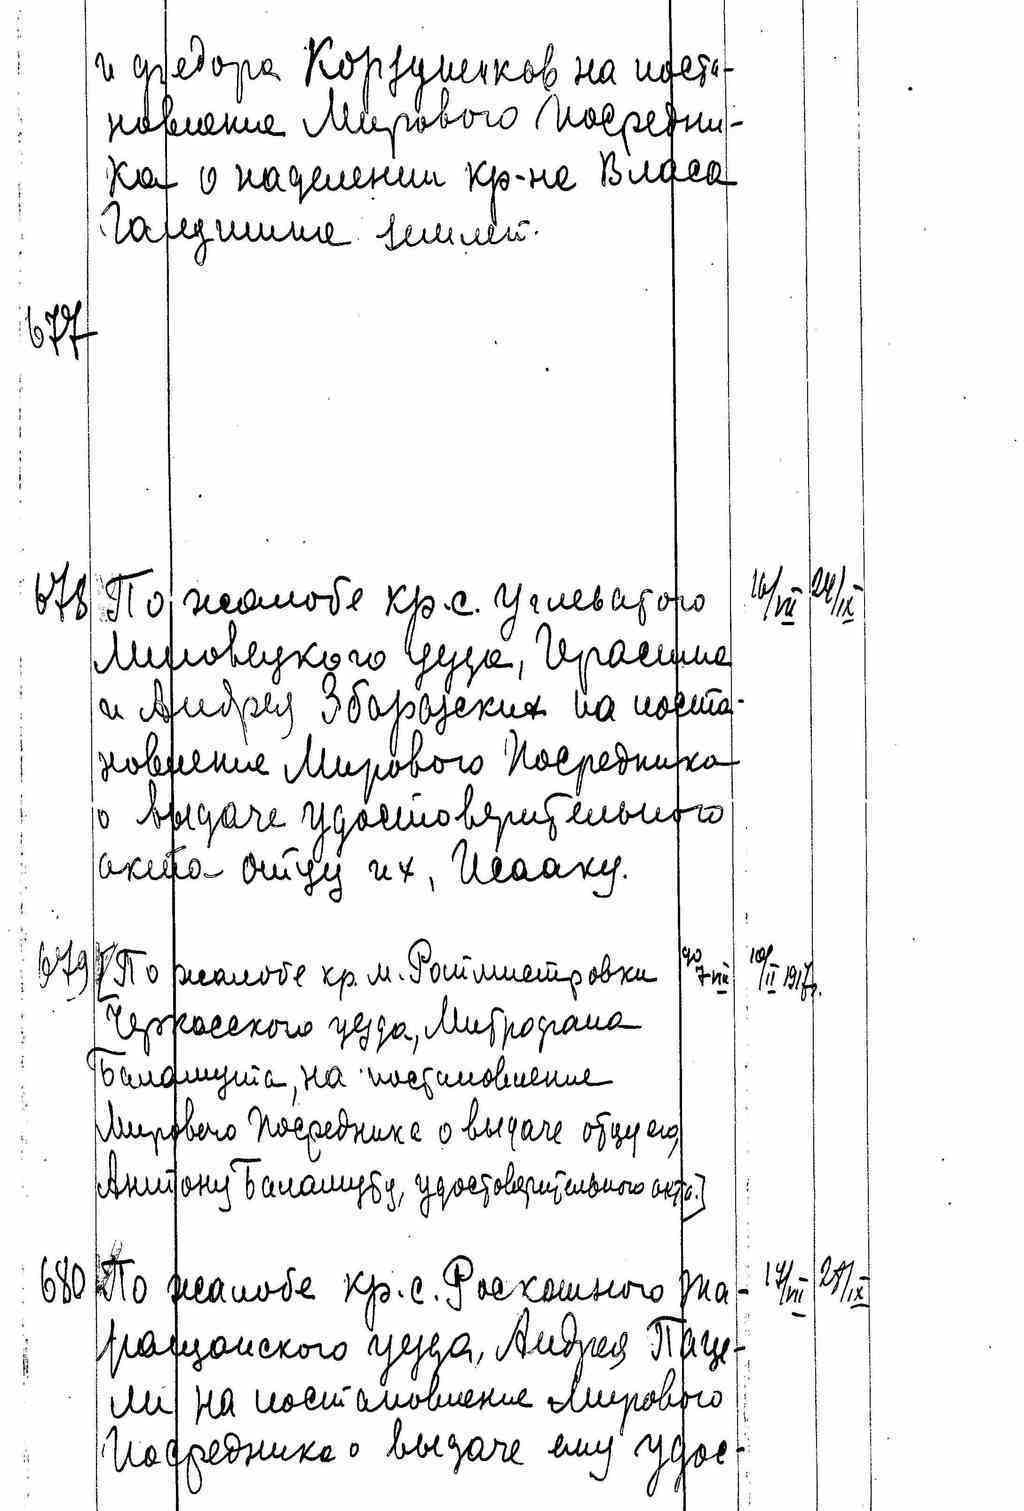 и Федора Корзушенков на поста-
новление Мирового Посредни-
ка о наделении кр-на Власа
землей.
677
678 По жалобе кр. с. Углеватого 16/VII 24/IX
Липовецкого уезда, Герасима
и Андрея Зборовских на поста-
новление Мирового Посредника
о выдаче удостоверительного
акта отцу их, Исааку.
679 [По жалобе кр. м. Ротмистровки до 7 VII 10/II 1917 г.
Черкасского уезда, Митрофана
Баламута, на постановление
Мирового Посредника о выдаче отцу его,
Антону Баламуту, удостоверительного акта.]
680 По жалобе кр. с. Роскошного Та- 17/VII 27/IX
ращанского уезда, Андрея Паце-
ли на постановление Мирового
Посредника о выдаче ему удос-